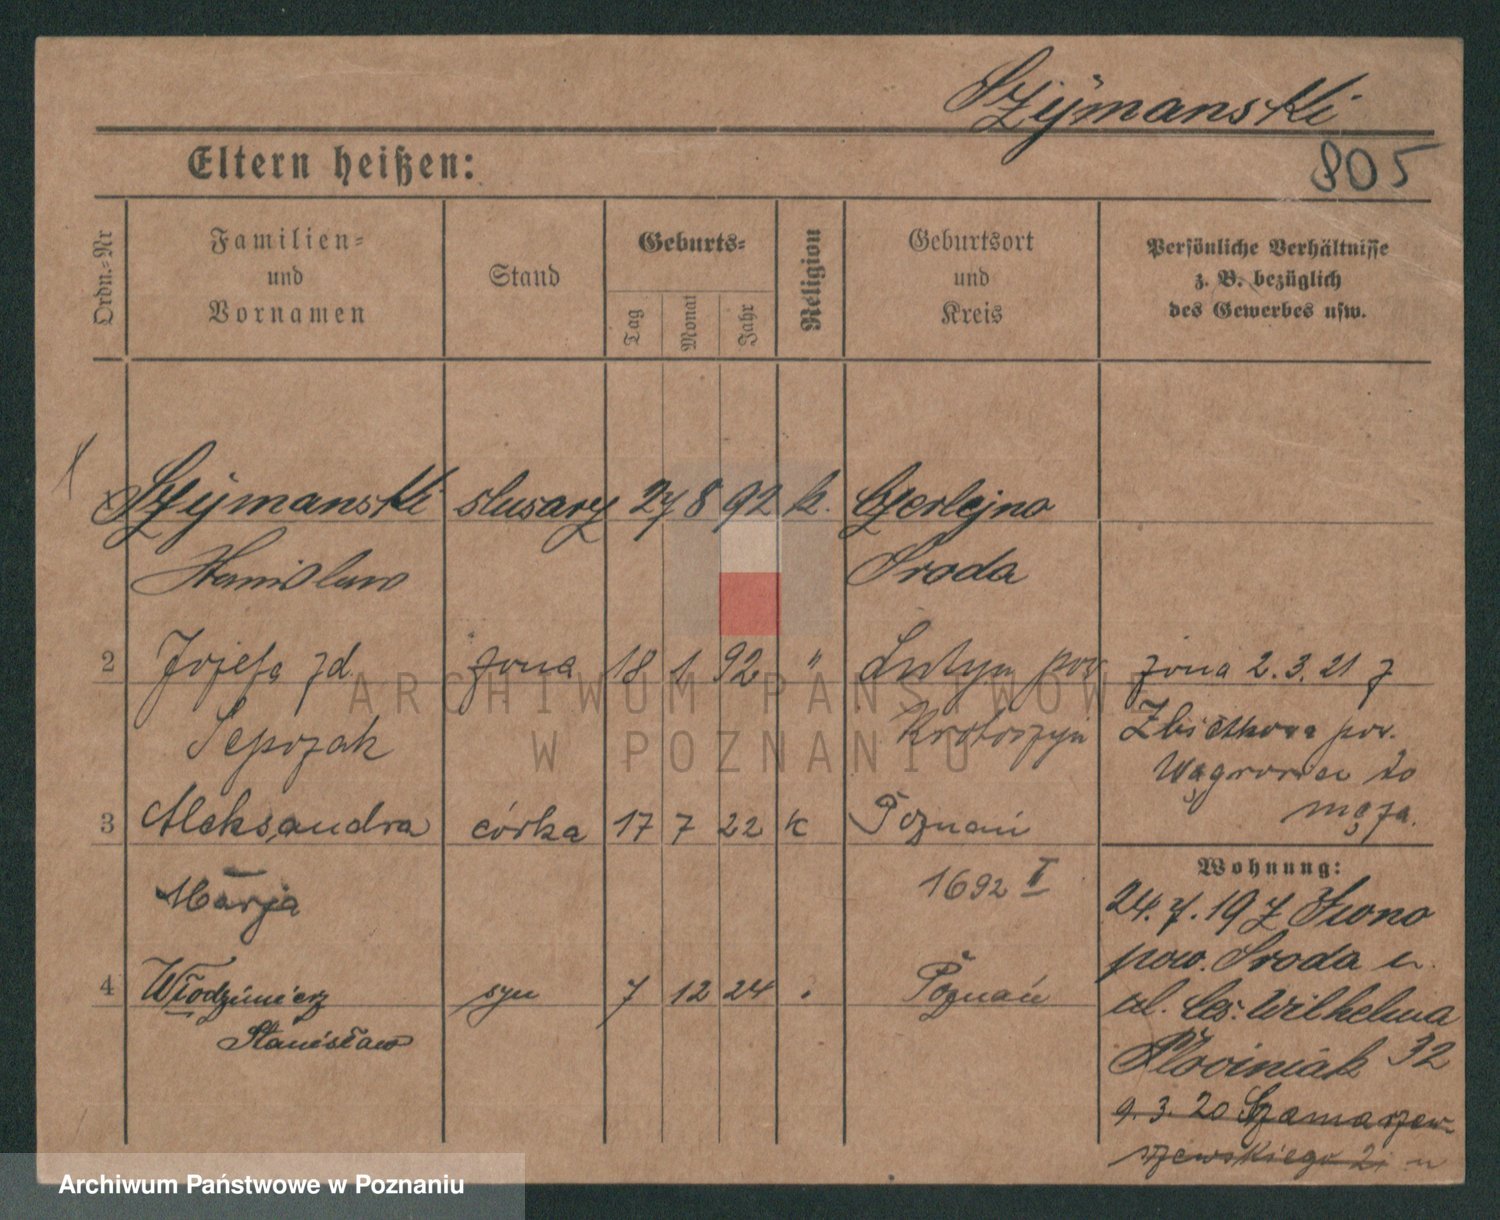 Szÿmanski
805
Eltern heißen:
Ordn.-Nr
Familien-
und
Vornamen
Stand
Geburts-
Tag
Monat
Jahr
Religion
Geburtsort
und
Kreis
Persönliche Verhältnisse
z. B. bezüglich
des Gewerbes usw.
Szÿmanski slusarz 27 8 92 k. Gzerlejno
Stanislaw Sroda
2 Józefa zd żona 18 1 92 " Lutyn pow żona 2.3.21 z
Krotoszyn pow.
do
męża.
3 Aleksandra córka 17 7 22 k Poznań
Marja 1692 I
4 Włodzimierz syn 7 12 24 Poznań
Stanisław
Wohnung:
24.7.19 z Iwno
pow. Sroda u.
ul. Ces. Wilhelma
32
9.3.20 Szamarzew-
szewskiego 2 u
ARCHIWUM PAŃSTWOWE
W POZNANIU
Archiwum Państwowe w Poznaniu